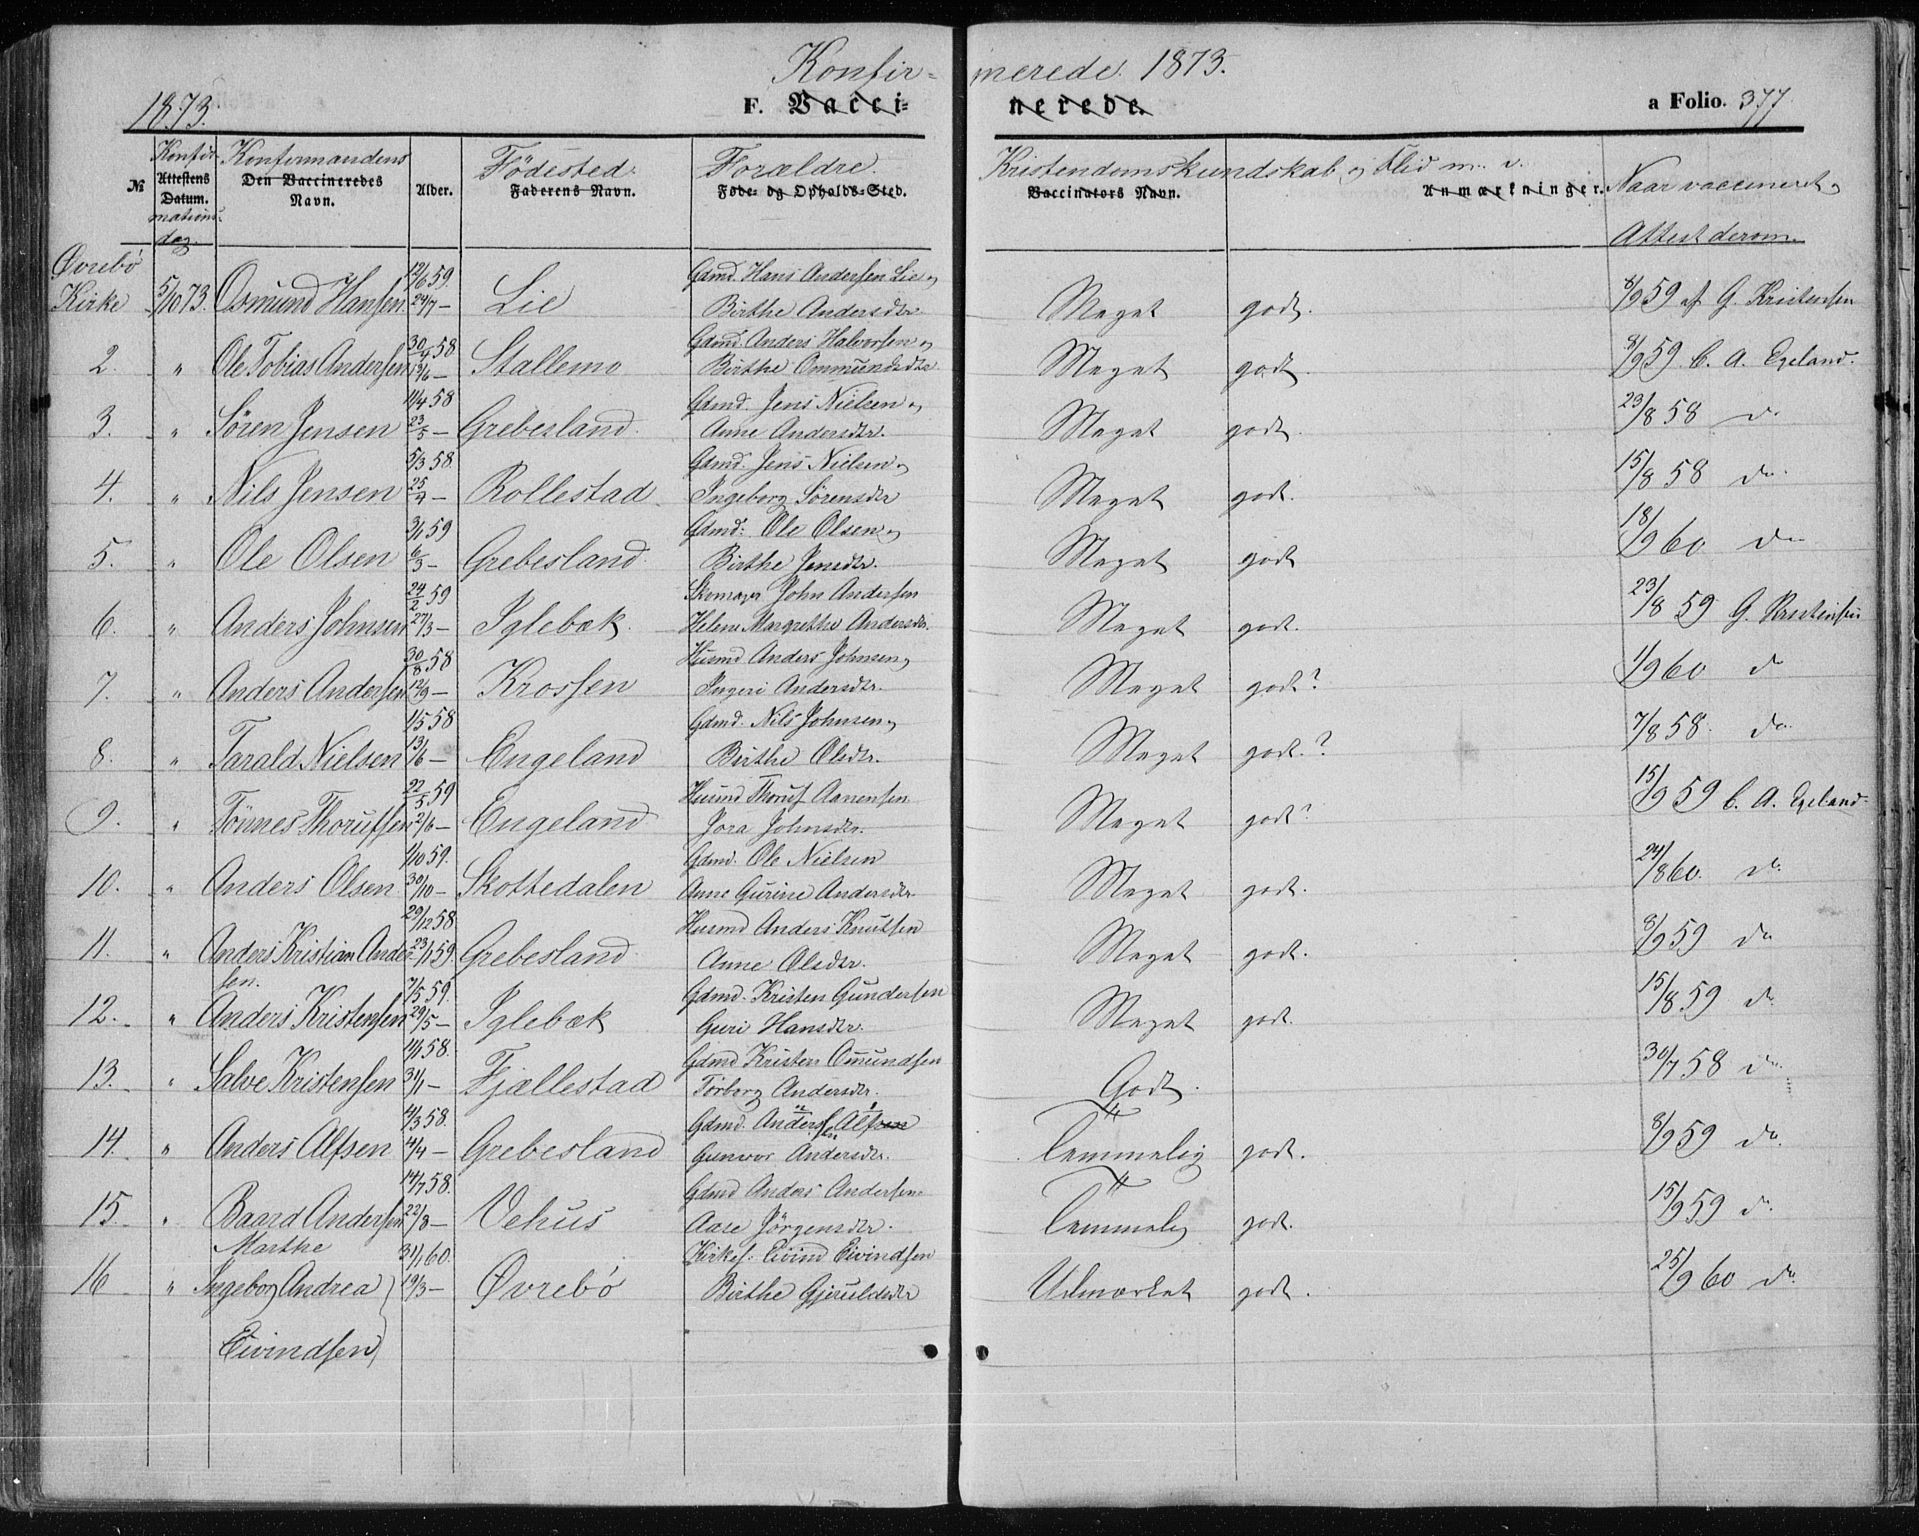 Konfir- merede 1873.
1873. F. Vacci- nerede. a Folio. 377
Konfir Konfirmandens Födested. Forældre. Kristendomskundskab og Flid m. v. Naar vaccineret og
№ Attestens Datum. Den Vaccineredes Navn. Alder. Faderens Navn. Føde- og Opholds-Sted. Vaccinators Navn. Anmærkninger.
mations dag. Attest derom.
Øvrebö 12/6 59 Gdmd. Hans Andersen Lie og
Kirke 5/10 73. Osmund Hansen 24/7 — Lie Birthe Andersdtr. Meget godt. 8/9 59 af G. Kristensen
30/4 58 Gdmd. Anders Halvorsen og
2. " Ole Tobias Andersen 12/6 — Stallemo Birthe Ommundsdtr. Meget godt. 8/9 59. C. A. Egeland.
11/4 58 Gdmd. Jens Nielsen og
3. " Sören Jensen 23/5 — Grebesland Anne Andersdtr. Meget godt. 23/8 58 do
5/3 58. Gdmd. Jens Nielsen og
4. " Nils Jensen 25/4 — Rollestad Ingeborg Sörensdtr Meget godt. 15/8 58 do
3/1 59 Gdmd. Ole Olsen og
5. " Ole Olsen 6/3 — Grebesland Birthe Jensdtr. Meget godt 18/9 60 do
24/2 59 Skomager John Andersen
6. " Anders Johnsen 27/3 — Iglebæk Helene Margrethe Andersdtr. Meget godt. 23/8 59 G. Kristensen
30/8 58 Husmd Anders Johnsen og
7. " Anders Andersen 12/9 — Krossen Ingeri Andersdtr. Meget godt? 1/9 60 do
1/5 58 Gdmd. Nils Johnsen og
8. " Tarald Nielsen 13/6 — Engeland Birthe Olsdtr. Meget godt.? 7/8 58. do
22/5 59 Husmd Thoruf Aanensen
9. " Tönnes Thorufsen 2/6 — Engeland Jora Johnsdtr. Meget godt? 15/9 59 C. A. Egeland
1/10 59. Gdmd. Ole Nielsen
10. " Anders Olsen 30/10 — Skottedalen Anne Gurine Andersdtr. Meget godt. 24/8 60. do
29/12 58. Husmd Anders Knutsen
11. " Anders Kristian Ander 23/1 59. Grebesland Anne Olsdtr. Meget godt. 8/9 59 do
sen. 7/5 59. Gdmd. Kristen Gundersen
12. " Anders Kristensen 29/5 — Iglebæk Guri Hansdtr. Meget godt. 15/8 59 do
14/1 58. Gdmd Kristen Omundsen
13. " Salve Kristensen 31/1 — Fjællestad Torborg Andersdtr. Godt. 30/7 58 do
4/3 58. Gdmd. Andersen Alfsen
14. " Anders Alfsen 4/4 — Grebesland Gunvor Andersdtr. Temmelig godt. 8/9 59 do
14/7 58. Gdmd Anders Andersen
15. " Baard Andersen 22/8 — Vehus Aase Jörgensdtr. Temmelig godt. 15/9 59 do
Marthe 31/1 60. Kirkes. Eivind Eivindsen
16 " Ingeborg Andrea 19/3 — Øvrebö Birthe Gjeruldsdtr Udmærket godt. 25/9 60 do
Eivindsen